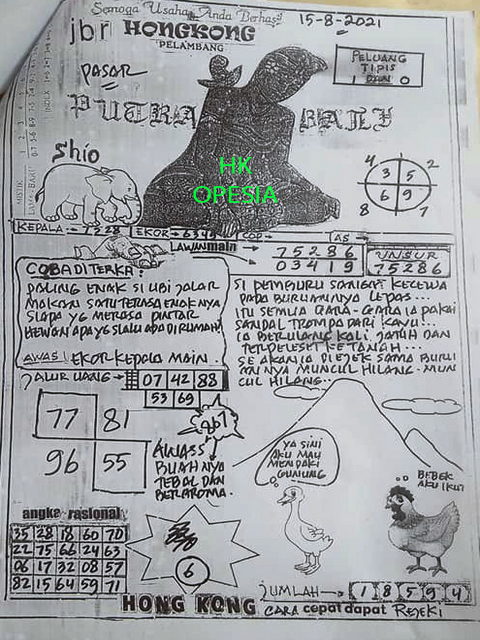 Semoga Usaha Anda Berhasil
15-8-2021
jbr HONGKONG
PELAMBANG
PELUANG
TIPIS
1 DAN 0
PASAR
PUTRA BALI
Shio
HK
OPESIA
4 2
3 5
6 9
8 7
KEPALA → 7528 EKOR → 6349 COP → AS →
LAWAN main
75286
03419
UNSUR
75286
COBA DITERKA:
PALING ENAK SI UBI JALAR
MAKAN SATU TERASA ENAKNYA
SIAPA YG MERASA PINTAR
HEWAN APA YG SLALU ADA DI RUMAH
AWAS! EKOR KEPALA MAIN.
SI PEMBURU SANGAT KECEWA
PADA BURUANNYA LEPAS...
ITU SEMUA GARA-GARA IA PAKAI
SANDAL TROMPA DARI KAYU...
IA BERULANG KALI JATUH DAN
TERPELESET KE TANAH...
SEAKAN IA DI EJEK SAMA BURU
ANNYA MUNCUL HILANG - MUN
CUL HILANG..
JALUR UANG →
07 42 88
53 69
77 81
96 55
967
AWASS
BUAHNYA
TEBAL DAN
BERAROMA.
YA SINI
AKU MAU
MENDAKI
GUNUNG
BEBEK
AKU IKUT
angka rasional
35 28 18 60 70
22 75 66 24 63
06 17 32 08 57
82 15 64 59 71
6
JUMLAH → 1 8 5 9 4
HONG KONG CARA cepat dapat REJEKI